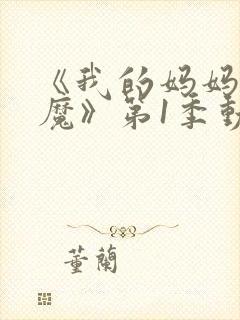 《我的妈妈
魔》第1季動
董蘭